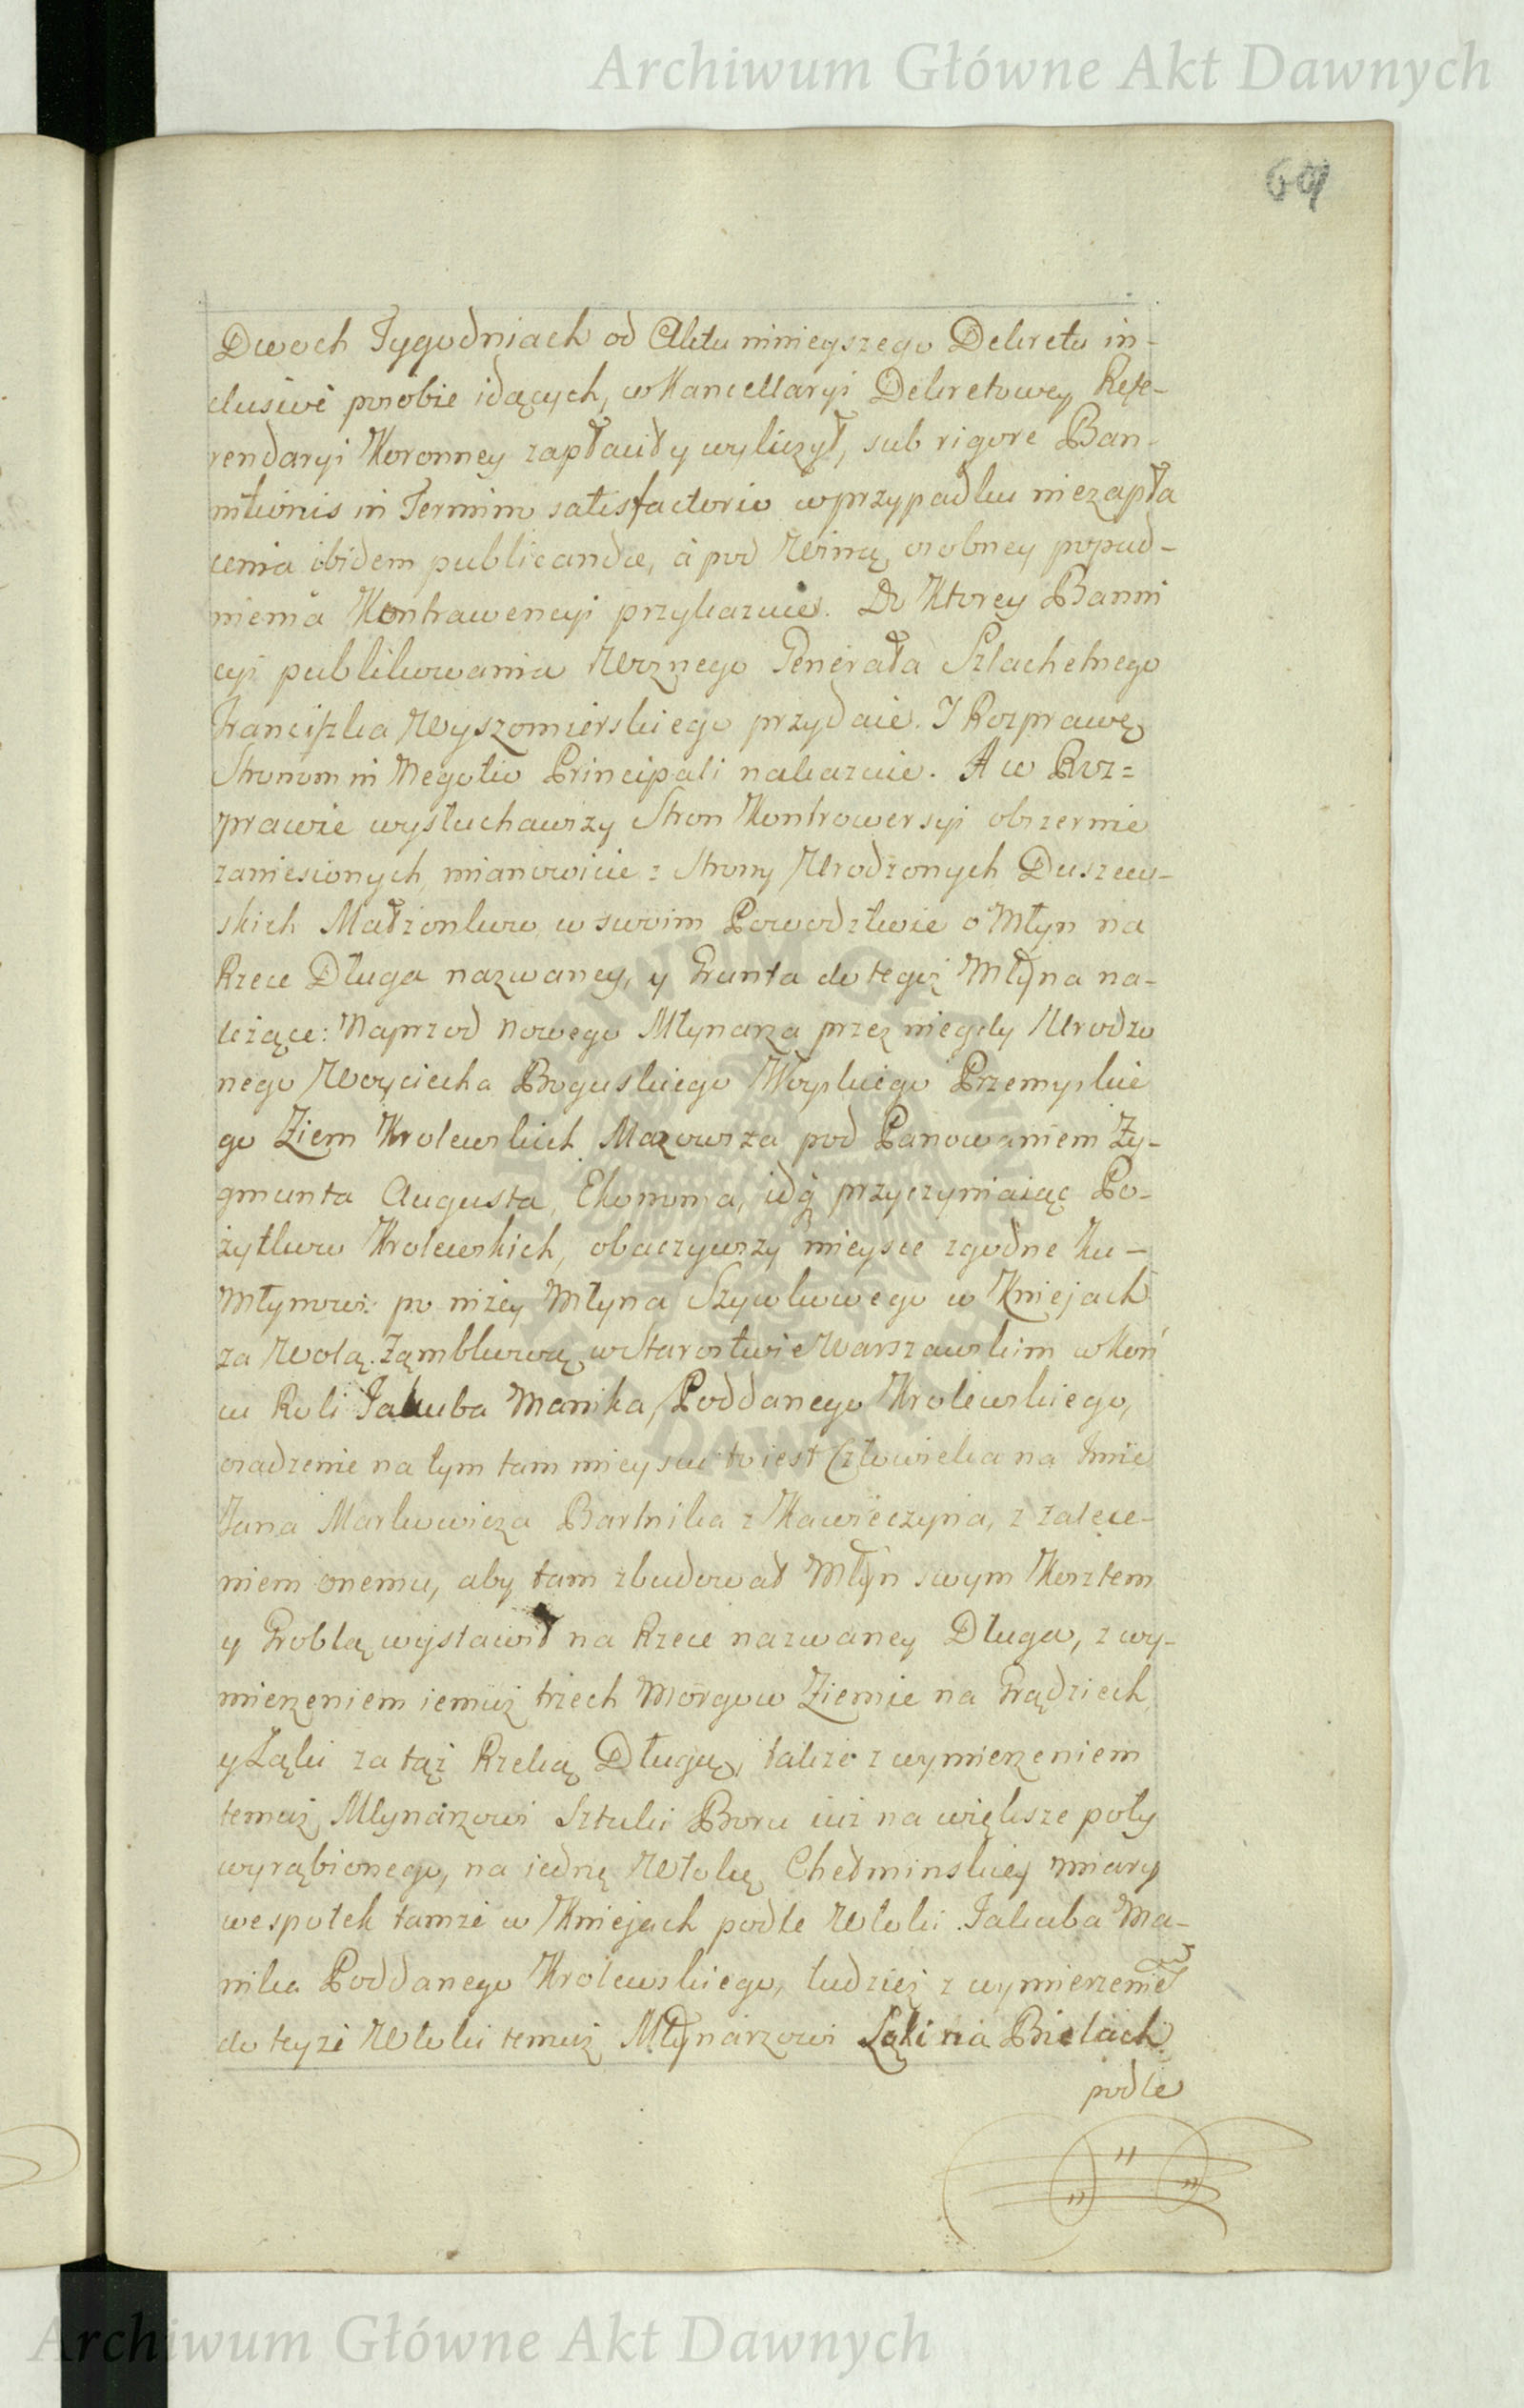 Archiwum Główne Akt Dawnych
69
Dwoch Tygodniach od Aktu ninieyszego Dekretu in-
clusivè posobie idących, w Kancellaryi Dekretowey Refe-
rendaryi Koronney zapłacił y wyliczył, sub rigore Ban-
nitionis in Termino satisfactorio w przypadku niezapła
cenia ibidem publicandæ, à pod Winą osobney popad-
nienia Kontrawencyi przykazuie. Do Ktorey Banni
cyi publikowania Woznego Generała Szlachetnego
Franciszka Wyszomierskiego przydaie. I Rozprawę
Stronom in Negotio Principali nakazuie. A w Roz=
prawie wysłuchawszy Stron Kontrowersyi obszernie
zaniesionych, mianowicie z Strony Urodzonych Duszew-
skich Małżonkow, w swoim Powodztwie o Młyn na
Rzece Długa nazwaney, y Grunta do tegoż Młyna na-
leżące: Naprzod Nowego Młynarza przez niegdy Urodzo
nego Woyciecha Boguskiego Woyskiego Przemyskie
go Ziem Krolewskich Mazowsza pod Panowaniem Zy-
gmunta Augusta, Ekonoma, idą przyczyniaiąc Po-
żytkow Krolewskich, obaczywszy mieysce zgodne ku-
Młynowi po niżey Młyna Szywkowego w Kniejach
za Wolą Ząmbkową w Starostwie Warszawskim w Koń
cu Roli Jakuba Manika, Poddanego Krolewskiego,
osadzenie na tym tam mieyscu to iest Człowieka na Imie
Jana Markowicza Bartnika z Kawieczyna, z zalece-
niem onemu, aby tam zbudował Młyn swym Kosztem
y Groblą wystawił na Rzece nazwaney Długa, z wy-
mierzeniem iemuż trzech Morgow Ziemie na Grądziech
y Łąki za tąż Rzeką Długą, także z wymierzeniem
temuż Młynarzowi Sztuki Boru iuż na większe poły
wyrąbionego, na iednę Włokę Chełminskiey miary
wespołek tamże w Kniejach podle Włoki Jakuba Ma-
nika Poddanego Krolewskiego, tudzież z wymierzenie
do teyże Włoki temuż Młynarzowi Łąki na Bielach
podle
Archiwum Główne Akt Dawnych